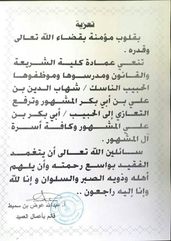 تعزية
بقلوب مؤمنة بقضاء الله تعالى
وقدره .
تنعي عمادة كلية الشريعة
والقانون ومدرسوها وموظفوها
الحبيب الناسك / شهاب الدين بن
علي بن أبي بكر المشهور وترفع
التعازي إلى الحبيب / أبي بكر بن
علي المشهور وكافة أسرة
آل المشهور .
سائلين الله تعالى أن يتغمد
الفقيد بواسع رحمته وأن يلهم
أهله وذويه الصبر والسلوان و إنا لله
وإنا إليه راجعون ..
عبدالله عوض بن سميط
قائم بأعمال العميد